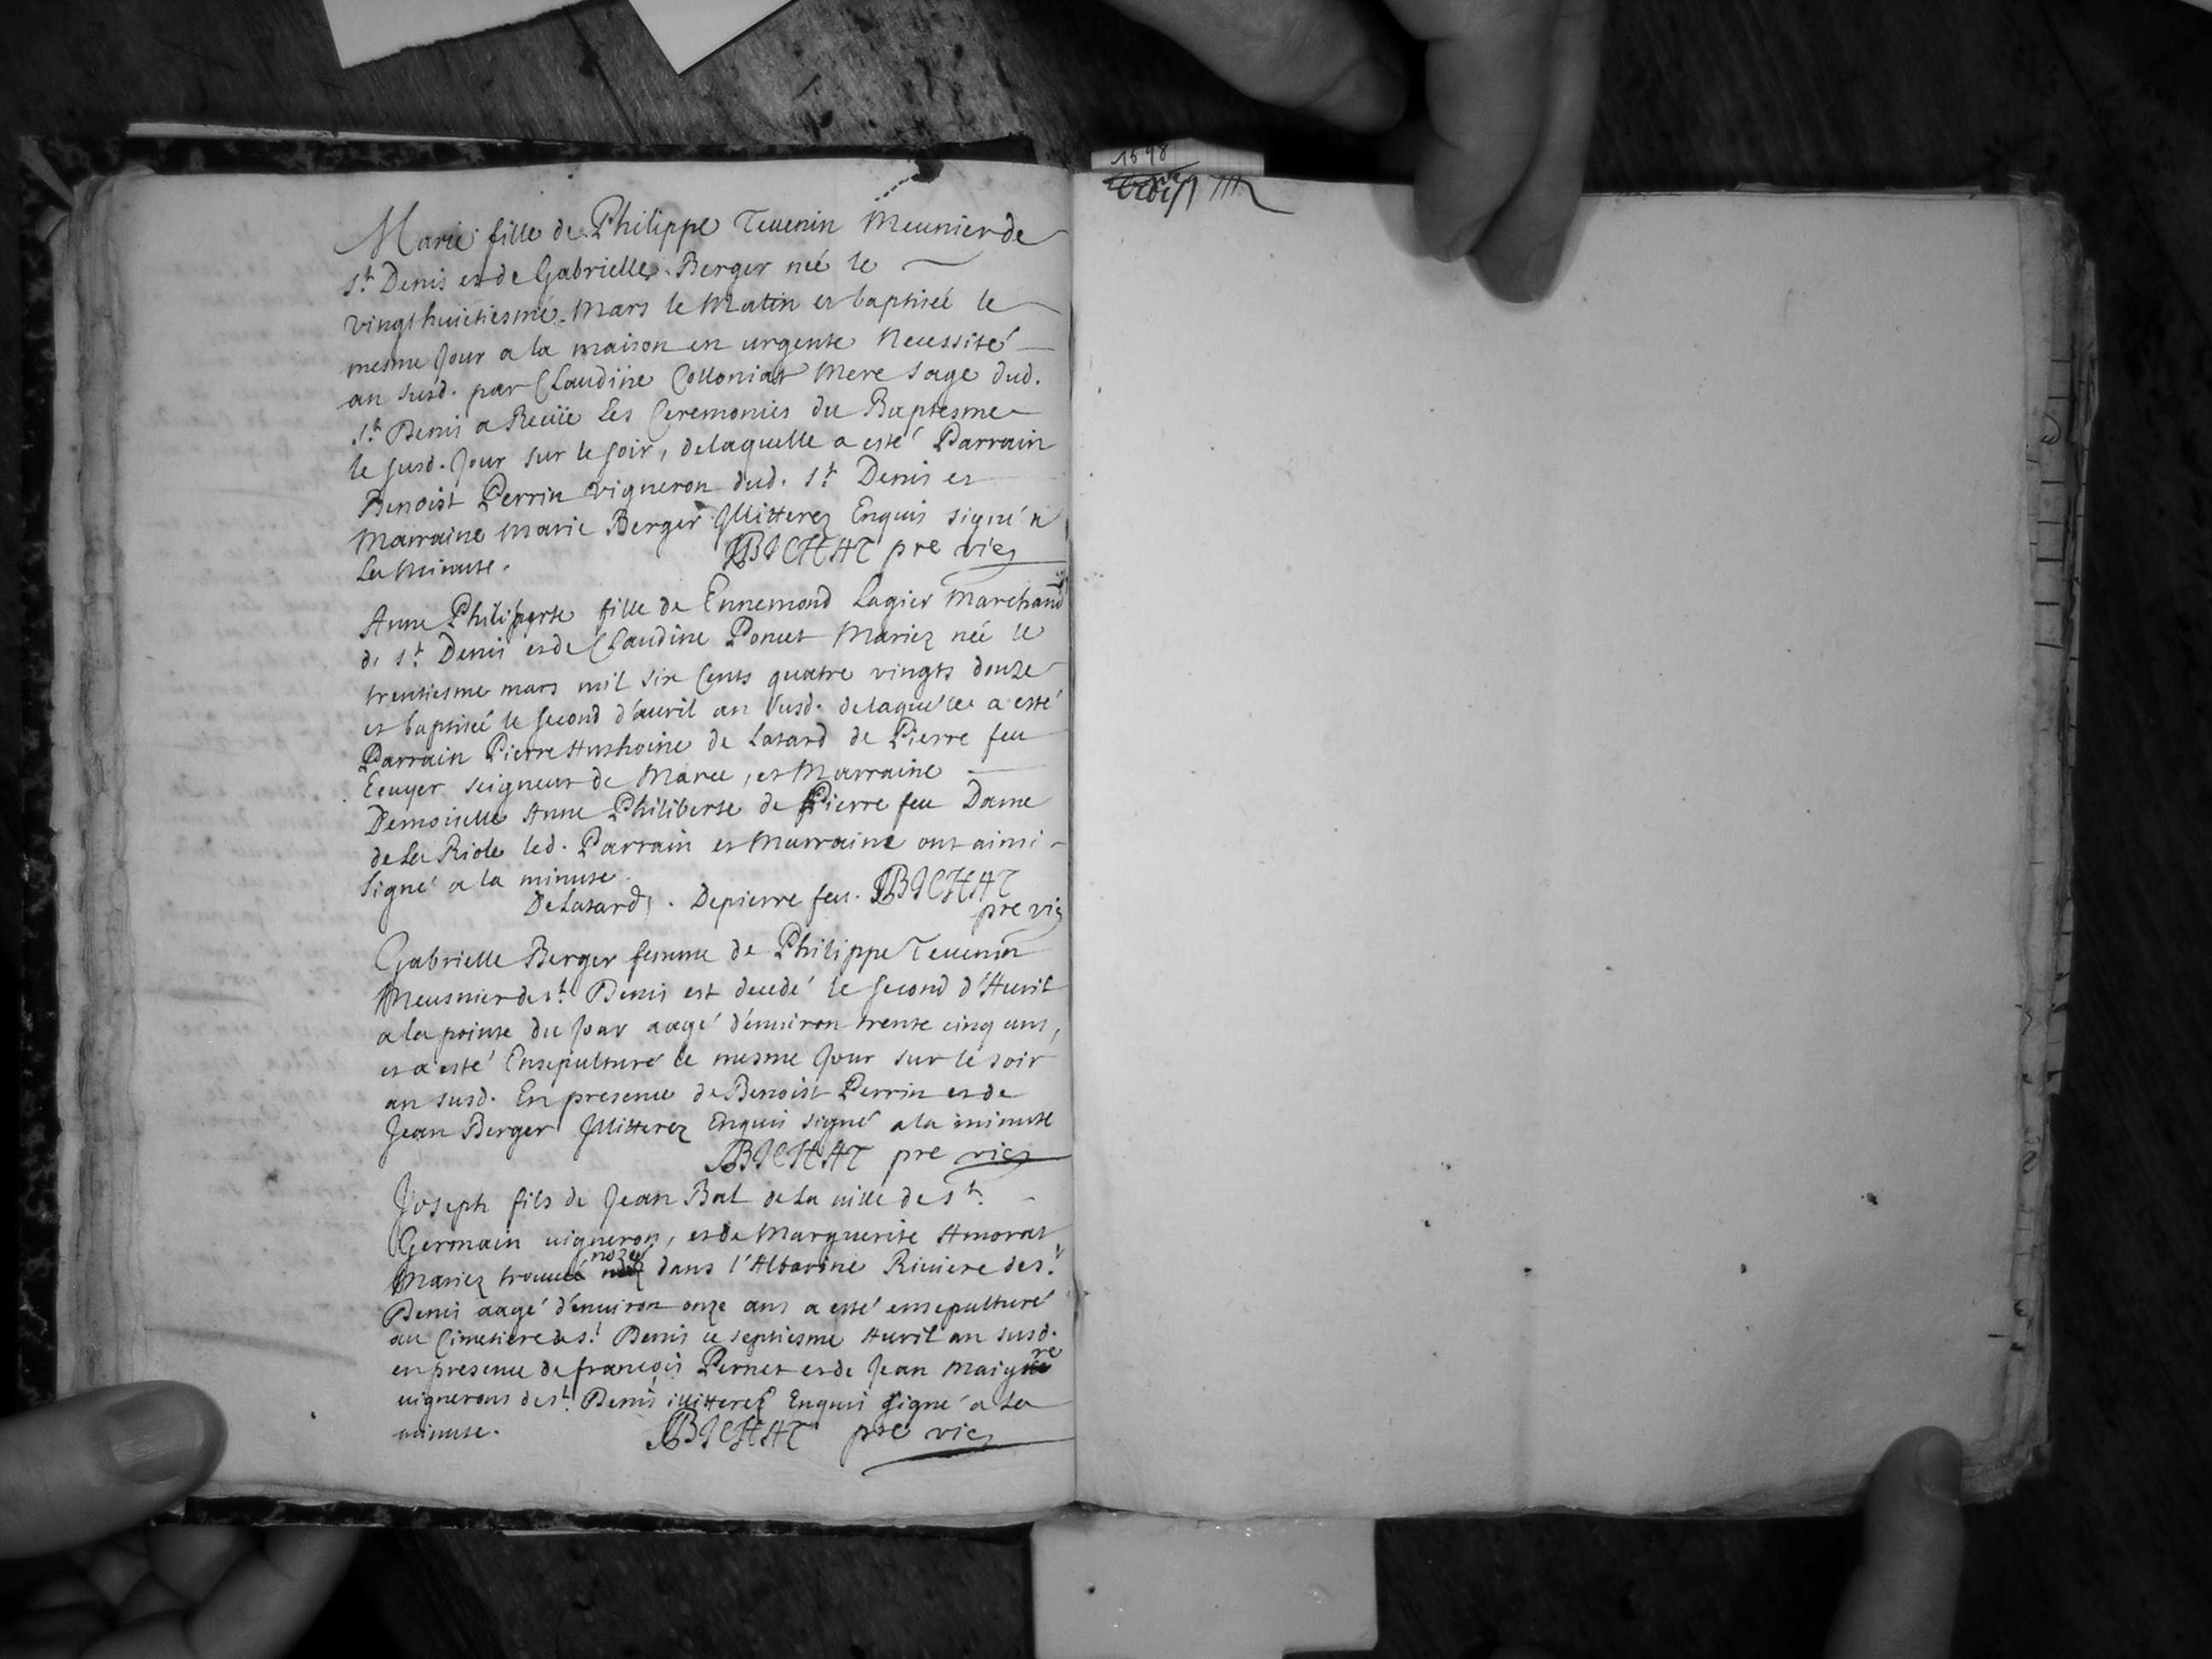 1698
Marie fille de Philippe Tevenin Meunier de
St Denis et de Gabrielle Berger née le
vingt huictiesme Mars le Matin et baptiséé le
mesme Jour a la maison en urgente Necessité
an susd. par Claudine Colloniat Mere sage dud.
St Denis a Receüe Les Ceremonies du Baptesme
le susd. Jour sur le soir, delaquelle a esté Parrain
Benoist Perrin vigneron dud. St Denis et
Marraine Marie Berger Jllitterez Enquis signé a
La Minute. BICHAT pre vic
Anne Philiberte fille de Ennemond Lagier Marchand
de St Denis et de Claudine Poncet Mariez née le
trentiesme mars mil six Cents quatre vingts douze
et baptiséé le second d'auril an susd. delaquelle a esté
Parrain Pierre Anthoine de Lasard de Pierre feu
Ecuyer seigneur de Marce, et Marraine
Demoiselle Anne Philiberte de Pierre feu Dame
de La Riole led. Parrain et Marraine ont ainsi
signé a la minute.
DeLasard. Depierre feu. BICHAT
pre vic
Gabrielle Berger femme de Philippe Tevenin
Meusnier de St Denis est decedé le second d'Auril
a la pointe du Jour aagé d'enuiron trente cinq ans,
et a esté Ensepulturé le mesme Jour sur le soir
an susd. En presence de Benoist Perrin et de
Jean Berger Jllitterez Enquis signé a la minute
BICHAT pre vic
Joseph fils de Jean Bal de La uille de St
Germain uigneron, et de Marguerite Amorat
Mariez trouué nozé dans l'Albarine Riuiere de St
Denis aagé d'enuiron onze ans a esté ensepulturé
au Cimetiere de St Denis ce septiesme Auril an susd.
en presence de françois Pernet et de Jean Maigre
uignerons de St Denis illitterez Enquis signé a La
minute. BICHAT pre vic